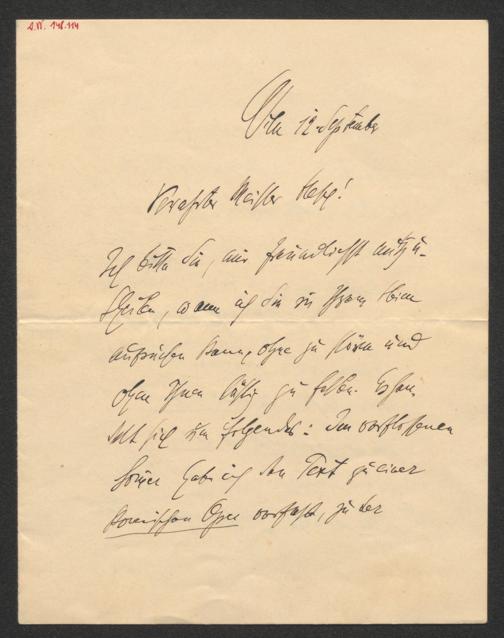 Wien 12. September
Verehrter Meister
Ich bitte Sie, mir freundlichst mitzu-
theilen, wann ich Sie in Ihrem Heim
aufsuchen kann, ohne zu stören und
ohne Ihnen lästig zu fallen. Es han-
delt sich um folgendes: Im verflossenen
Sommer habe ich den Text zu einer
komischen Oper verfasst, zu der